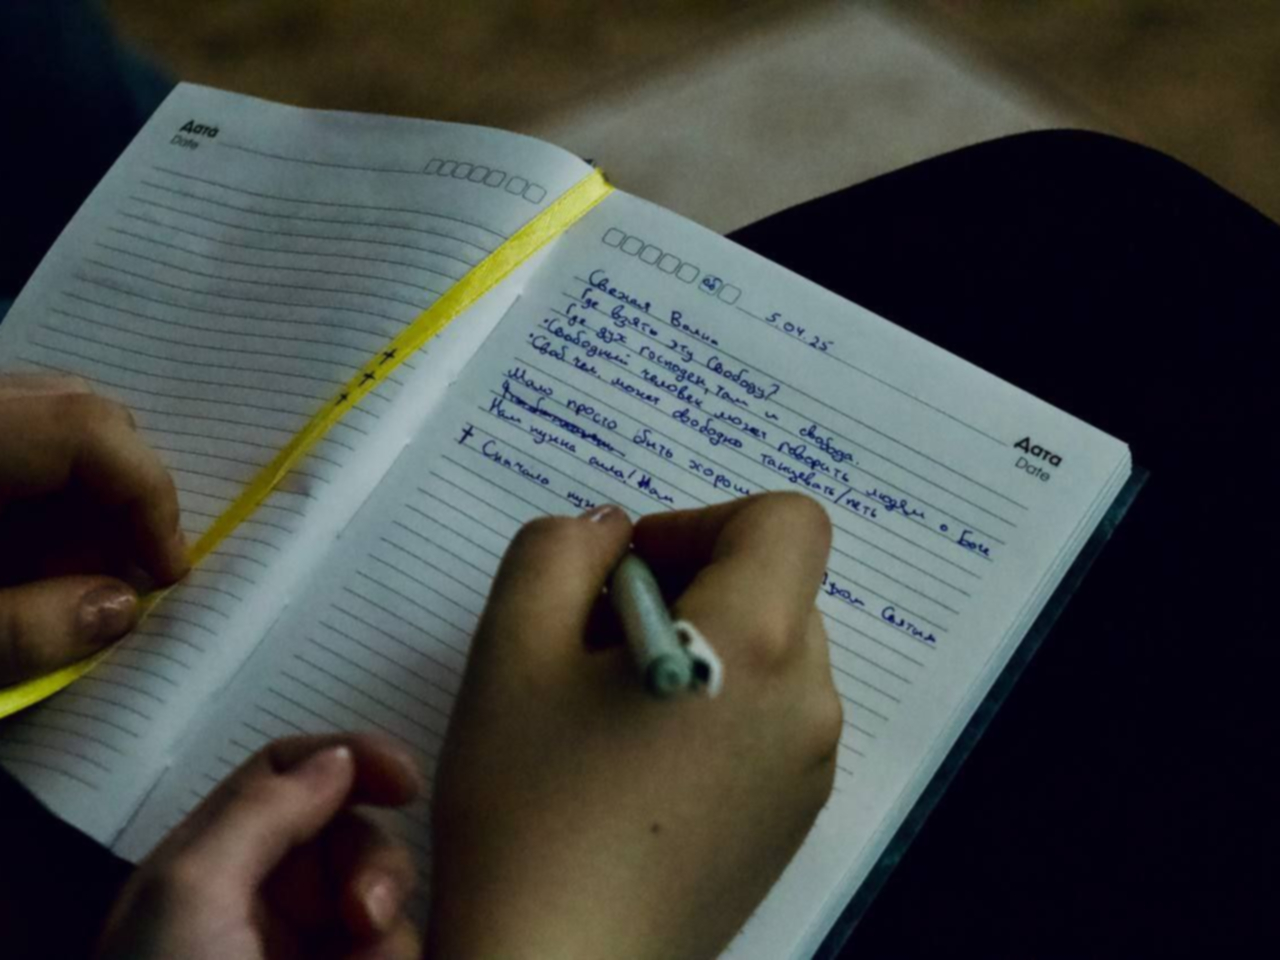 Дата
Date
сб
5.04.25
Свежая Волна
Где взять эту Свободу?
Где дух господен, там и свобода.
•Свободный человек может говорить людям о Боге
•Своб чел. может свободно танцевать/петь
Мало просто быть хорош
Нам нужна сила! Нам
Святым
Сначала нуж
Дата
Date